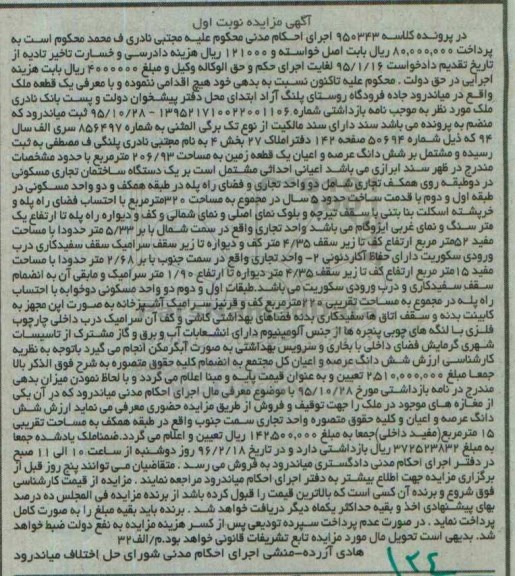 آگهی مزایده نوبت اول
در پرونده کلاسه ۹۵۰۳۴۳ اجرای احکام مدنی محکوم علیه مجتبی نادری ف محمد محکوم است به
پرداخت ۸۰,۰۰۰,۰۰۰ ریال بابت اصل خواسته و ۱۲۱۰۰۰ ریال هزینه دادرسی و خسارت تاخیر تادیه از
تاریخ تقدیم دادخواست ۹۵/۱/۱۶ لغایت اجرای حکم و حق الوکاله وکیل و مبلغ ۴۰۰۰۰۰۰ ریال بابت هزینه
اجرایی در حق دولت . محکوم علیه تاکنون نسبت به بدهی خود هیچ اقدامی ننموده و با معرفی یک قطعه ملک
واقع در میاندرود جاده فرودگاه روستای پلنگ آزاد ابتدای محل دفتر پیشخوان دولت و پست بانک نادری
ملک مورد نظر به موجب نامه بازداشتی شماره ۱۳۹۵۲۱۷۱۰۰۲۲۰۰۱۱۰۶ - ۹۵/۱۰/۲۸ ثبت میاندرود که
منضم به پرونده می باشد سند دارای سند مالکیت از نوع تک برگی المثنی به شماره ۸۵۶۴۹۷ سری الف سال
۹۴ که ذیل شماره ۵۰۶۹۴ صفحه ۱۴۲ دفتراملاک ۲۷ بخش ۴ به نام مجتبی نادری پلنگی ف مصطفی به ثبت
رسیده و مشتمل بر شش دانگ عرصه و اعیان یک قطعه زمین به مساحت ۲۰۶/۹۳ مترمربع با حدود مشخصات
مندرج در ظهر سند ابرازی می باشد اعیانی احداثی مشتمل است بر یک دستگاه ساختمان تجاری مسکونی
در دوطبقه روی همکف تجاری شامل دو واحد تجاری و فضای راه پله در طبقه همکف و دو واحد مسکونی در
طبقه اول و دوم با قدمت ساخت حدود ۵ سال در مجموع به مساحت ۳۲۰مترمربع با احتساب فضای راه پله و
خرپشته اسکلت بنا بتنی با سقف تیرچه و بلوک نمای اصلی و نمای شمالی و کف و دیواره راه پله تا ارتفاع یک
متر سنگ و نمای غربی ایزوگام می باشد واحد تجاری واقع در سمت شمال با بر ۵/۳۳ متر حدودا با مساحت
مفید ۵۲متر مربع ارتفاع کف تا زیر سقف ۴/۳۵ متر کف و دیواره تا زیر سقف سرامیک سقف سفیدکاری درب
ورودی سکوریت دارای حفاظ آکاردئونی ۲- واحد تجاری واقع در سمت جنوب با بر ۲/۶۸ متر حدودا با مساحت
مفید ۱۵متر مربع ارتفاع کف تا زیر سقف ۴/۳۵ متر دیواره تا ارتفاع ۱/۹۰ متر سرامیک و مابقی آن به انضمام
سقف سفیدکاری و درب ورودی سکوریت می باشد.طبقات اول و دوم دو واحد مسکونی دوخوابه با احتساب
راه پله در مجموع به مساحت تقریبی ۲۲۰مترمربع کف و قرنیز سرامیک آشپزخانه به صورت اپن مجهز به
کابینت بدنه و سقف اتاق ها سفیدکاری بدنه فضاهای بهداشتی کاشی و کف آن سرامیک درب داخلی چارچوب
فلزی با لنگه های چوبی پنجره ها از جنس آلومینیوم دارای انشعابات آب و برق و گاز مشترک از تاسیسات
شهری گرمایش فضای داخلی با بخاری و سرویس بهداشتی به صورت آبگرمکن انجام می گیرد باتوجه به نظریه
کارشناسی ارزش شش دانگ عرصه و اعیان کل مجتمع به انضمام کلیه حقوق متصوره به شرح فوق الذکر بالا
جمعا مبلغ ۲۵۱۰,۰۰۰,۰۰۰ تعیین و به عنوان قیمت پایه و مبنا اعلام می گردد و با لحاظ نمودن میزان بدهی
مندرج در نامه بازداشتی مورخ ۹۵/۱۰/۲۸ با موضوع معرفی مال اجرای احکام مدنی میاندرود که در آن یکی
از مغازه های موجود در ملک را جهت توقیف و فروش از طریق مزایده حضوری معرفی می نماید ارزش شش
دانگ عرصه و اعیان و کلیه حقوق متصوره واحد تجاری سمت جنوب واقع در طبقه همکف به مساحت تقریبی
۱۵ مترمربع(مفید داخلی)جمعا به مبلغ ۱۴۲۵۰۰,۰۰۰ ریال تعیین و اعلام می گردد.ضمناملک یادشده جمعا
به مبلغ ۳۷۲۵۲۳۸۳۲ ریال بازداشتی دارد و در تاریخ ۹۶/۲/۱۸ روز دوشنبه از ساعت ۱۰ الی ۱۱ صبح
در دفتر اجرای احکام مدنی دادگستری میاندرود به فروش می رسد . متقاضیان می توانند پنج روز قبل از
برگزاری مزایده جهت اطلاع بیشتر به دفتر اجرای احکام میاندرود مراجعه نمایند . مزایده از قیمت کارشناسی
فوق شروع و برنده آن کسی است که بالاترین قیمت را قبول کرده باشد از برنده مزایده فی المجلس ده درصد
بهای پیشنهادی اخذ و بقیه حداکثر یکماه دیگر دریافت خواهد شد . برنده باید بقیه مبلغ را به صورت کامل
پرداخت نماید . در صورت عدم پرداخت سپرده تودیعی پس از کسر هزینه مزایده به نفع دولت ضبط خواهد
شد. بدیهی است تحویل مال مورد مزایده تابع تشریفات قانونی خواهد بود.م/الف۳۲
هادی آزرده-منشی اجرای احکام مدنی شورای حل اختلاف میاندرود
۱۲۴